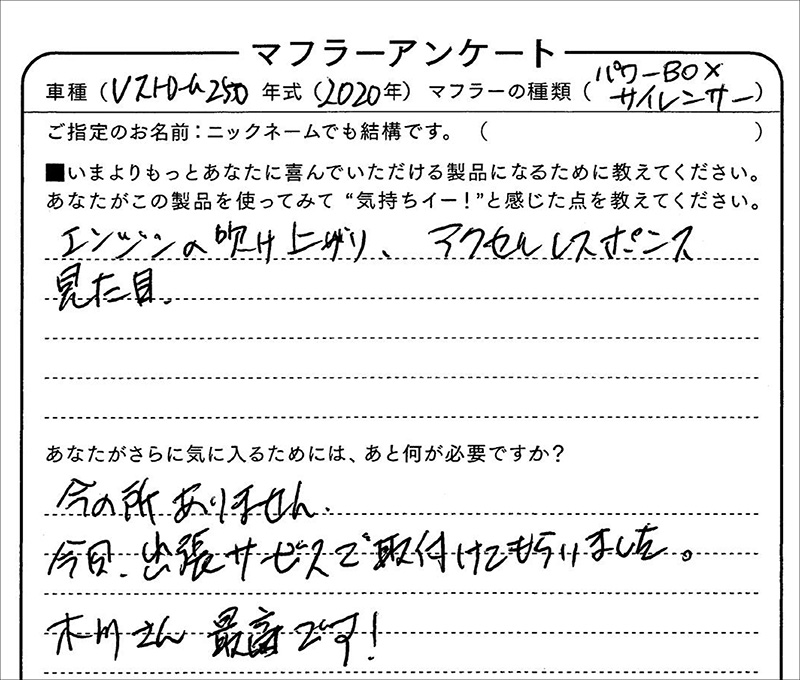 マフラーアンケート
車種（Vストローム250 年式（2020年）マフラーの種類（パワーBOXサイレンサー）
ご指定のお名前：ニックネームでも結構です。（ ）
■いまよりもっとあなたに喜んでいただける製品になるために教えてください。
あなたがこの製品を使ってみて“気持ちイー！”と感じた点を教えてください。
エンジンの吹け上がり、アクセルレスポンス
見た目.
あなたがさらに気に入るためには、あと何が必要ですか？
今の所ありません.
今日、出張サービスで取付けてもらいました。
木川さん 最高です！